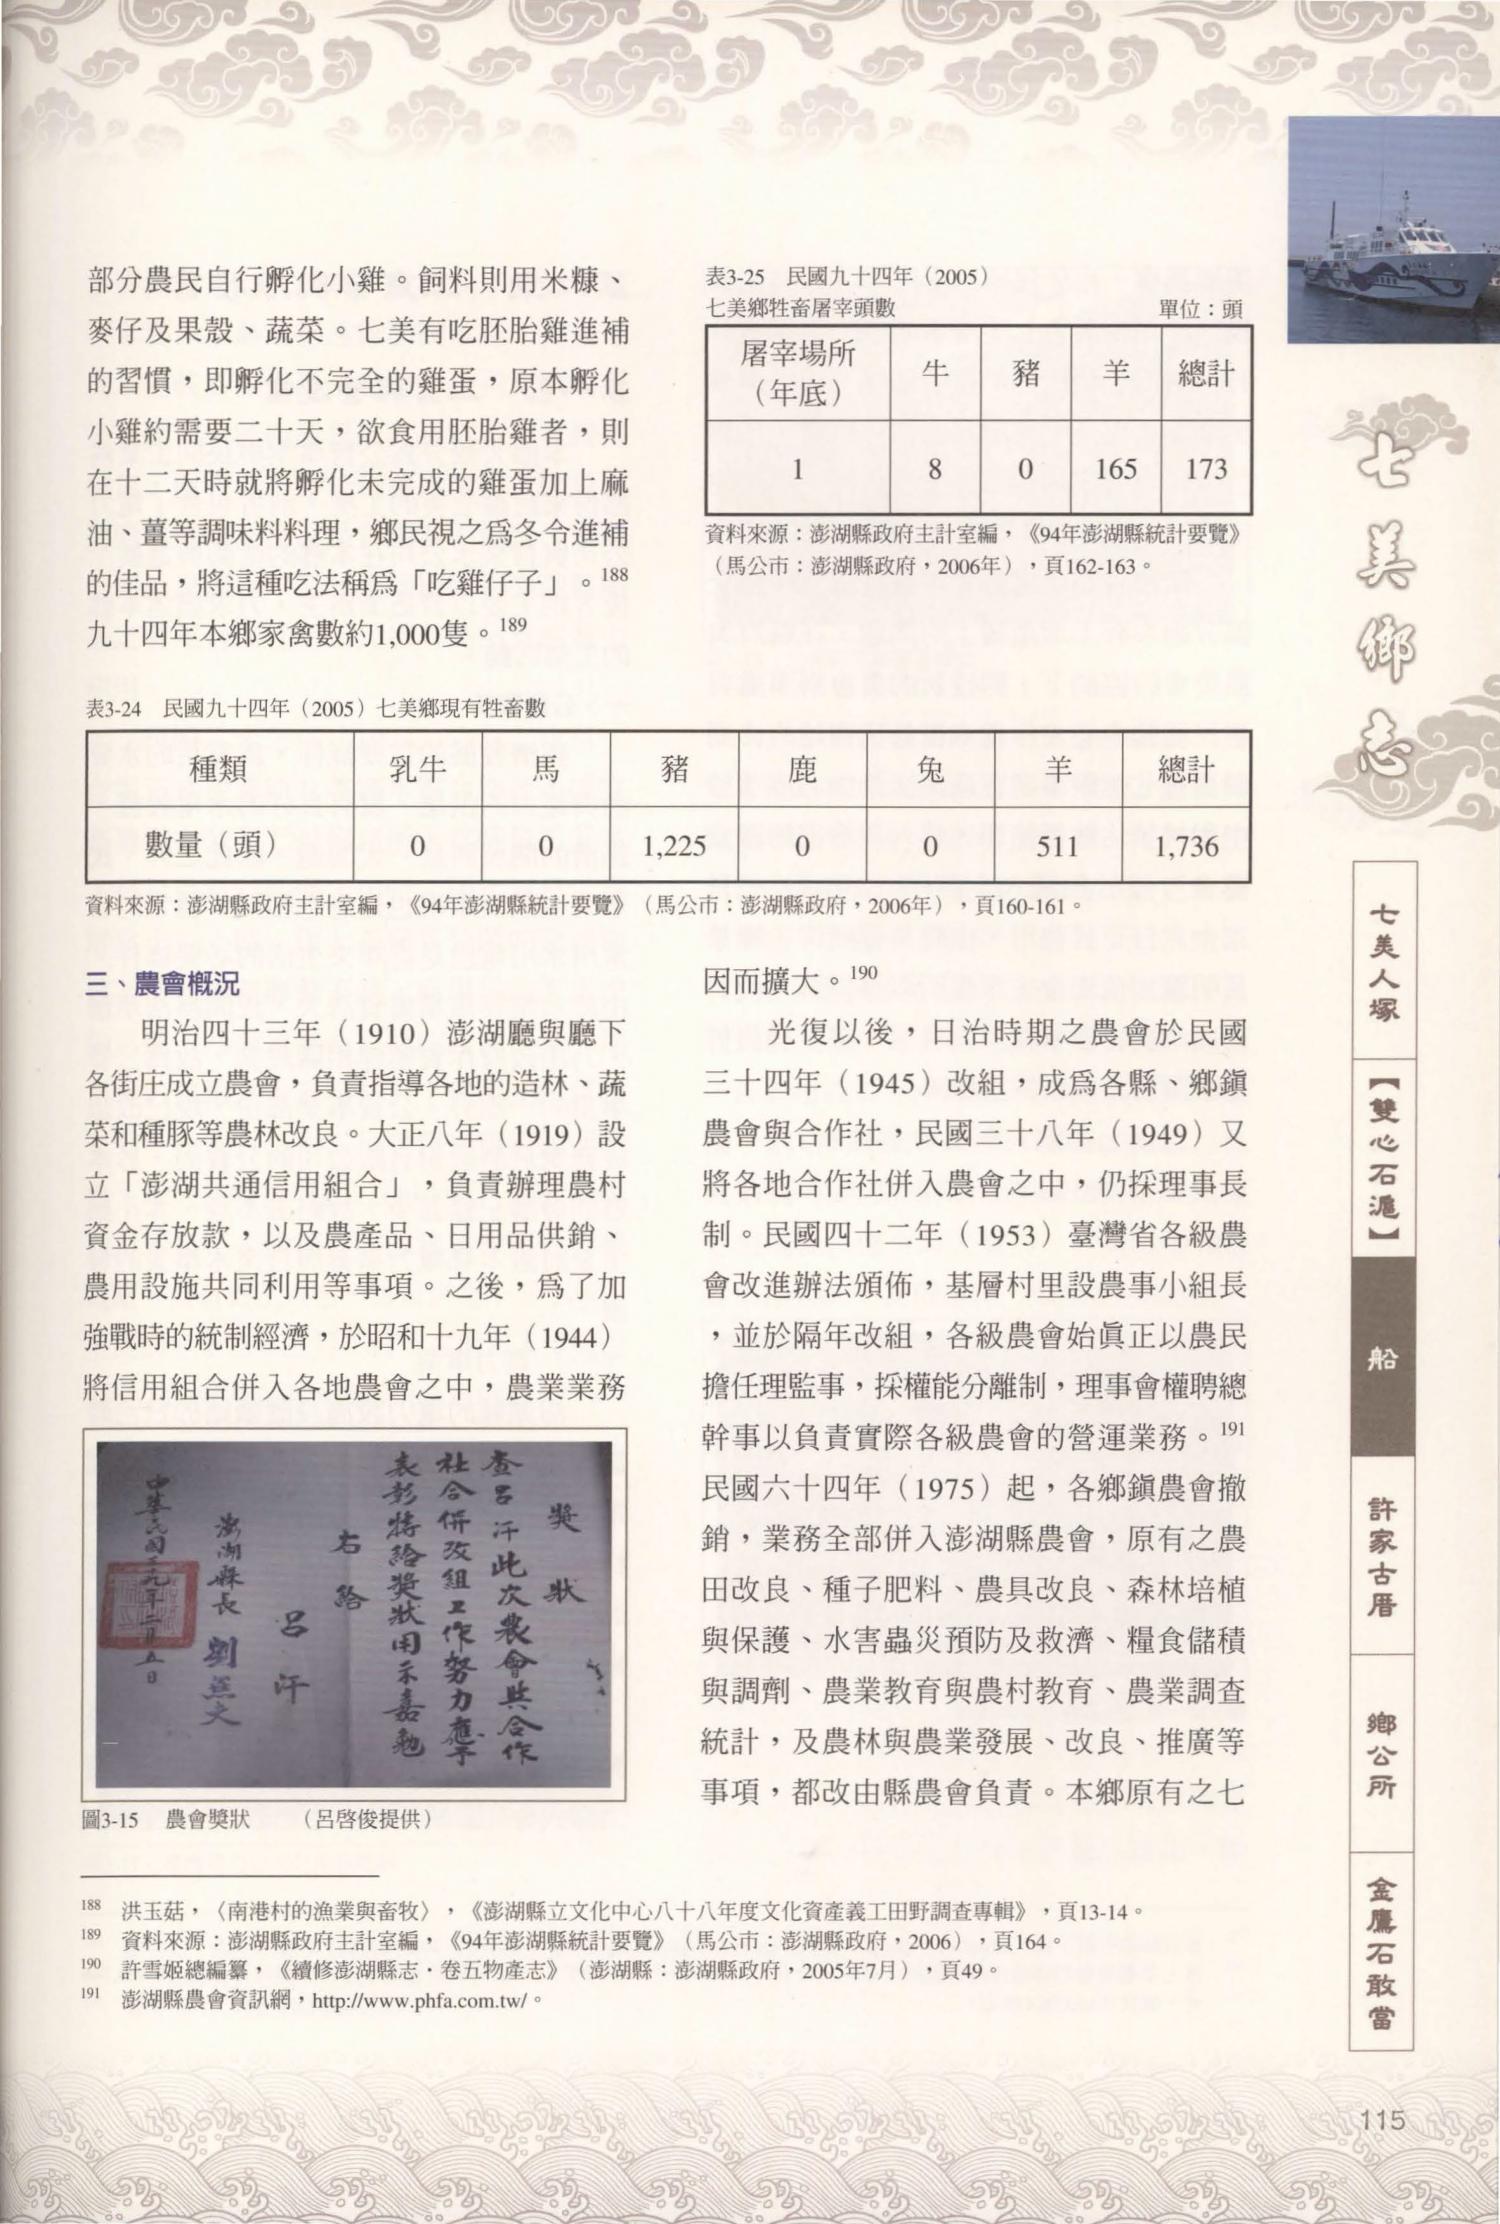 部分農民自行孵化小雞。飼料則用米糠、
麥仔及果殼、蔬菜。七美有吃胚胎雞進補
的習慣，即孵化不完全的雞蛋，原本孵化
小雞約需要二十天，欲食用胚胎雞者，則
在十二天時就將孵化未完成的雞蛋加上麻
油、薑等調味料料理，鄉民視之爲冬令進補
的佳品，將這種吃法稱爲「吃雞仔子」。188
九十四年本鄉家禽數約1,000隻。189
表3-25 民國九十四年（2005）
七美鄉牲畜屠宰頭數 單位：頭
屠宰場所（年底） 牛 豬 羊 總計
1 8 0 165 173
資料來源：澎湖縣政府主計室編，《94年澎湖縣統計要覽》
（馬公市：澎湖縣政府，2006年），頁162-163。
表3-24 民國九十四年（2005）七美鄉現有牲畜數
種類 乳牛 馬 豬 鹿 兔 羊 總計
數量（頭） 0 0 1,225 0 0 511 1,736
資料來源：澎湖縣政府主計室編，《94年澎湖縣統計要覽》（馬公市：澎湖縣政府，2006年），頁160-161。
三、農會概況
明治四十三年（1910）澎湖廳與廳下
各街庄成立農會，負責指導各地的造林、蔬
菜和種豚等農林改良。大正八年（1919）設
立「澎湖共通信用組合」，負責辦理農村
資金存放款，以及農產品、日用品供銷、
農用設施共同利用等事項。之後，爲了加
強戰時的統制經濟，於昭和十九年（1944）
將信用組合併入各地農會之中，農業業務
獎狀
查呂汗此次農會與合作
社合併改組工作努力應予
表彰特給獎狀用示嘉勉
右給
呂汗
澎湖縣長 劉燕夫
中華民國三九年二月五日
圖3-15 農會獎狀 （呂啓俊提供）
因而擴大。190
光復以後，日治時期之農會於民國
三十四年（1945）改組，成爲各縣、鄉鎭
農會與合作社，民國三十八年（1949）又
將各地合作社併入農會之中，仍採理事長
制。民國四十二年（1953）臺灣省各級農
會改進辦法頒佈，基層村里設農事小組長
，並於隔年改組，各級農會始眞正以農民
擔任理監事，採權能分離制，理事會權聘總
幹事以負責實際各級農會的營運業務。191
民國六十四年（1975）起，各鄉鎭農會撤
銷，業務全部併入澎湖縣農會，原有之農
田改良、種子肥料、農具改良、森林培植
與保護、水害蟲災預防及救濟、糧食儲積
與調劑、農業教育與農村教育、農業調查
統計，及農林與農業發展、改良、推廣等
事項，都改由縣農會負責。本鄉原有之七
188 洪玉菇，〈南港村的漁業與畜牧〉，《澎湖縣立文化中心八十八年度文化資產義工田野調查專輯》，頁13-14。
189 資料來源：澎湖縣政府主計室編，《94年澎湖縣統計要覽》（馬公市：澎湖縣政府，2006），頁164。
190 許雪姬總編纂，《續修澎湖縣志．卷五物產志》（澎湖縣：澎湖縣政府，2005年7月），頁49。
191 澎湖縣農會資訊網，http://www.phfa.com.tw/。
七美鄉志
七美人塚
【雙心石滬】
船
許家古厝
鄉公所
金鷹石敢當
115